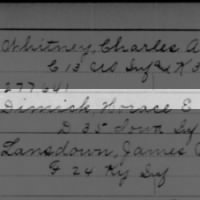 Whitney, Charles A
C 13 US Inf & K 3
277641
Dimick, Horace E
D 35 Iowa Inf
Lansdown, James
F 24 Ky Inf